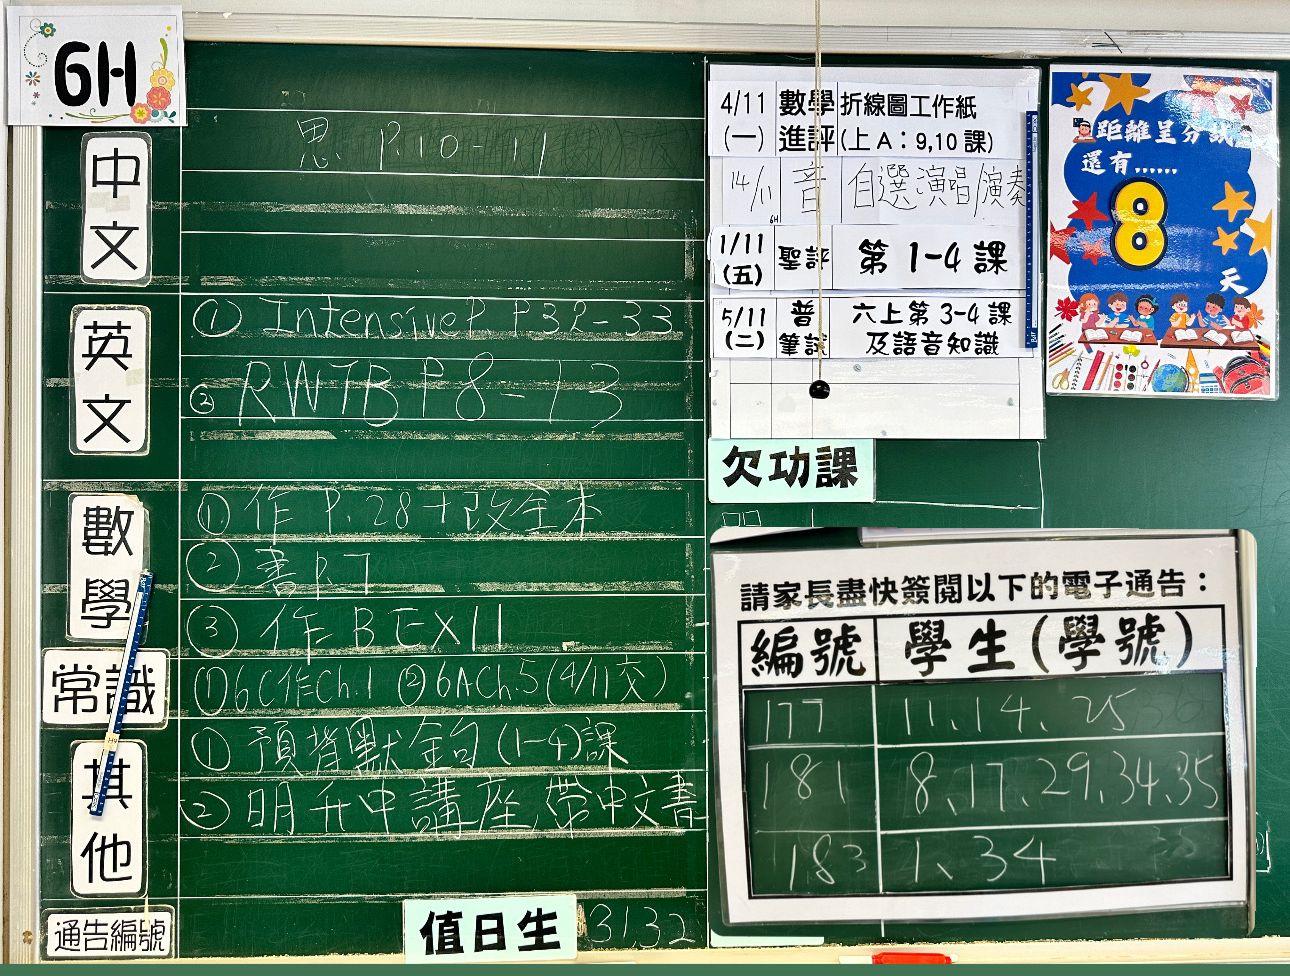 6H
中文
思 P.10-11
英文
① Intensive R P32-33
② RWTB P8-13
數學
① 作 P.28+改全本
② 書 P.7
③ 作 B EX11
常識
① 6C作Ch.1 ② 6A Ch.5 (4/11交)
其他
① 預背默金句 (1-4)課
② 明升中講座,帶中文書
通告編號
值日生 31,32
4/11 (一) 數學進評 折線圖工作紙 (上A:9,10課)
14/11 6H 音 自選演唱/演奏
1/11 (五) 聖評 第1-4課
5/11 (二) 普筆試 六上第3-4課及語音知識
距離呈分試
還有......
8
天
欠功課
請家長盡快簽閱以下的電子通告:
編號 學生(學號)
177 11、14、25
181 8、17、29、34、35
183 1、34